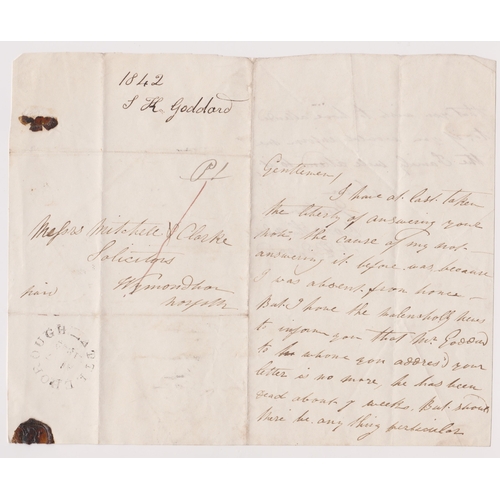 1842
S K Goddard
Pd
Messrs Mitchell & Clarke
Solicitors
Wymondham
Norfolk
paid
Gentlemen,
I have at last taken
the liberty of answering your
note, the cause of my not
answering it before was because
I was absent from home –
But I have the malencholy news
to inform you that Mr Goddard
to whome you address'd your
letter is no more, he has been
dead about 7 weeks. But should
their be any thing perticular